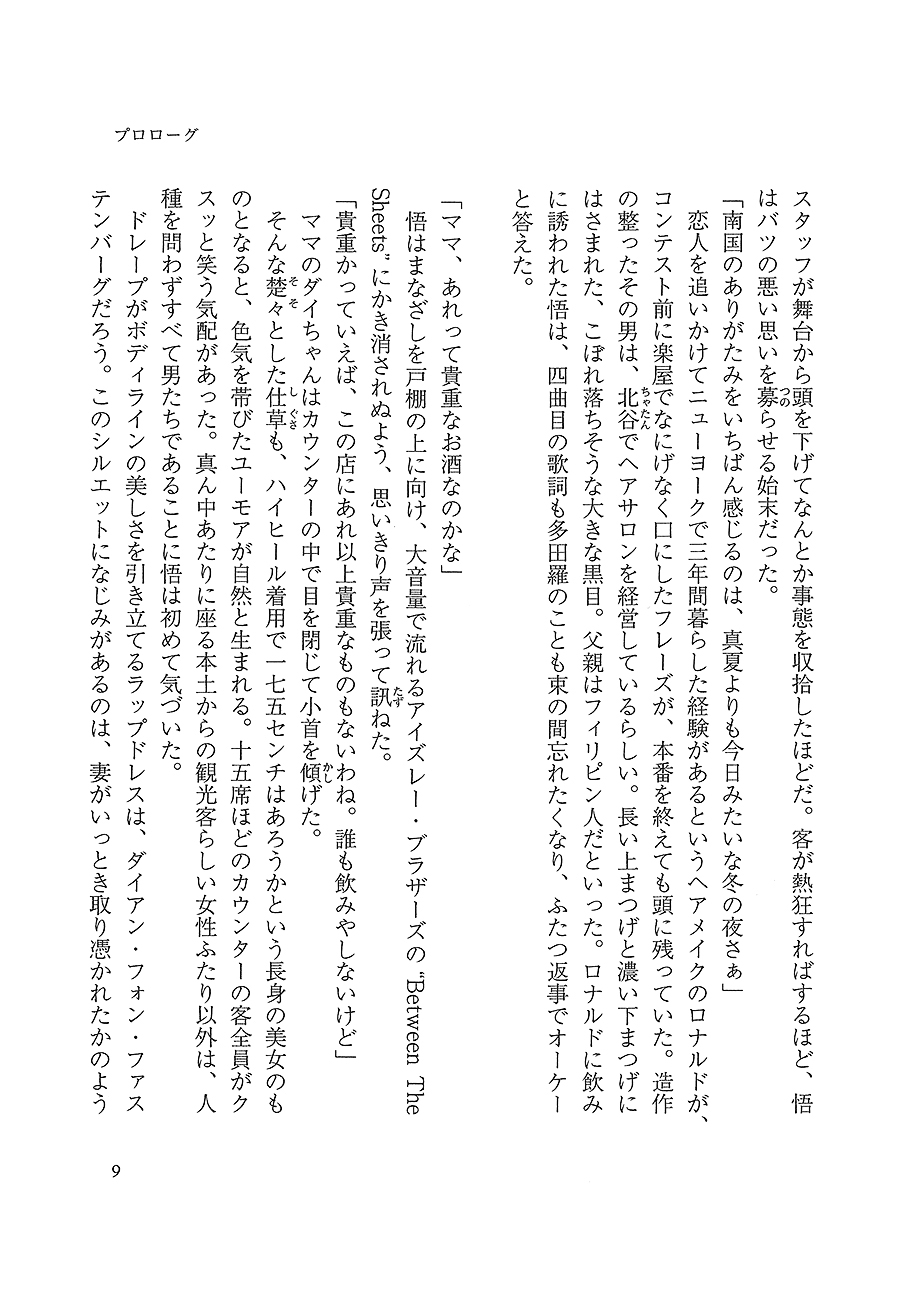 プロローグ
スタッフが舞台から頭を下げてなんとか事態を収拾したほどだ。客が熱狂すればするほど、悟
はバツの悪い思いを募らせる始末だった。
「南国のありがたみをいちばん感じるのは、真夏よりも今日みたいな冬の夜さぁ」
恋人を追いかけてニューヨークで三年間暮らした経験があるというヘアメイクのロナルドが、
コンテスト前に楽屋でなにげなく口にしたフレーズが、本番を終えても頭に残っていた。造作
の整ったその男は、北谷でヘアサロンを経営しているらしい。長い上まつげと濃い下まつげに
はさまれた、こぼれ落ちそうな大きな黒目。父親はフィリピン人だといった。ロナルドに飲み
に誘われた悟は、四曲目の歌詞も多田羅のことも束の間忘れたくなり、ふたつ返事でオーケー
と答えた。
「ママ、あれって貴重なお酒なのかな」
悟はまなざしを戸棚の上に向け、大音量で流れるアイズレー・ブラザーズの“Between The
Sheets”にかき消されぬよう、思いきり声を張って訊ねた。
「貴重かっていえば、この店にあれ以上貴重なものもないわね。誰も飲みやしないけど」
ママのダイちゃんはカウンターの中で目を閉じて小首を傾げた。
そんな楚々とした仕草も、ハイヒール着用で一七五センチはあろうかという長身の美女のも
のとなると、色気を帯びたユーモアが自然と生まれる。十五席ほどのカウンターの客全員がク
スッと笑う気配があった。真ん中あたりに座る本土からの観光客らしい女性ふたり以外は、人
種を問わずすべて男たちであることに悟は初めて気づいた。
ドレープがボディラインの美しさを引き立てるラップドレスは、ダイアン・フォン・ファス
テンバーグだろう。このシルエットになじみがあるのは、妻がいっとき取り憑かれたかのよう
9